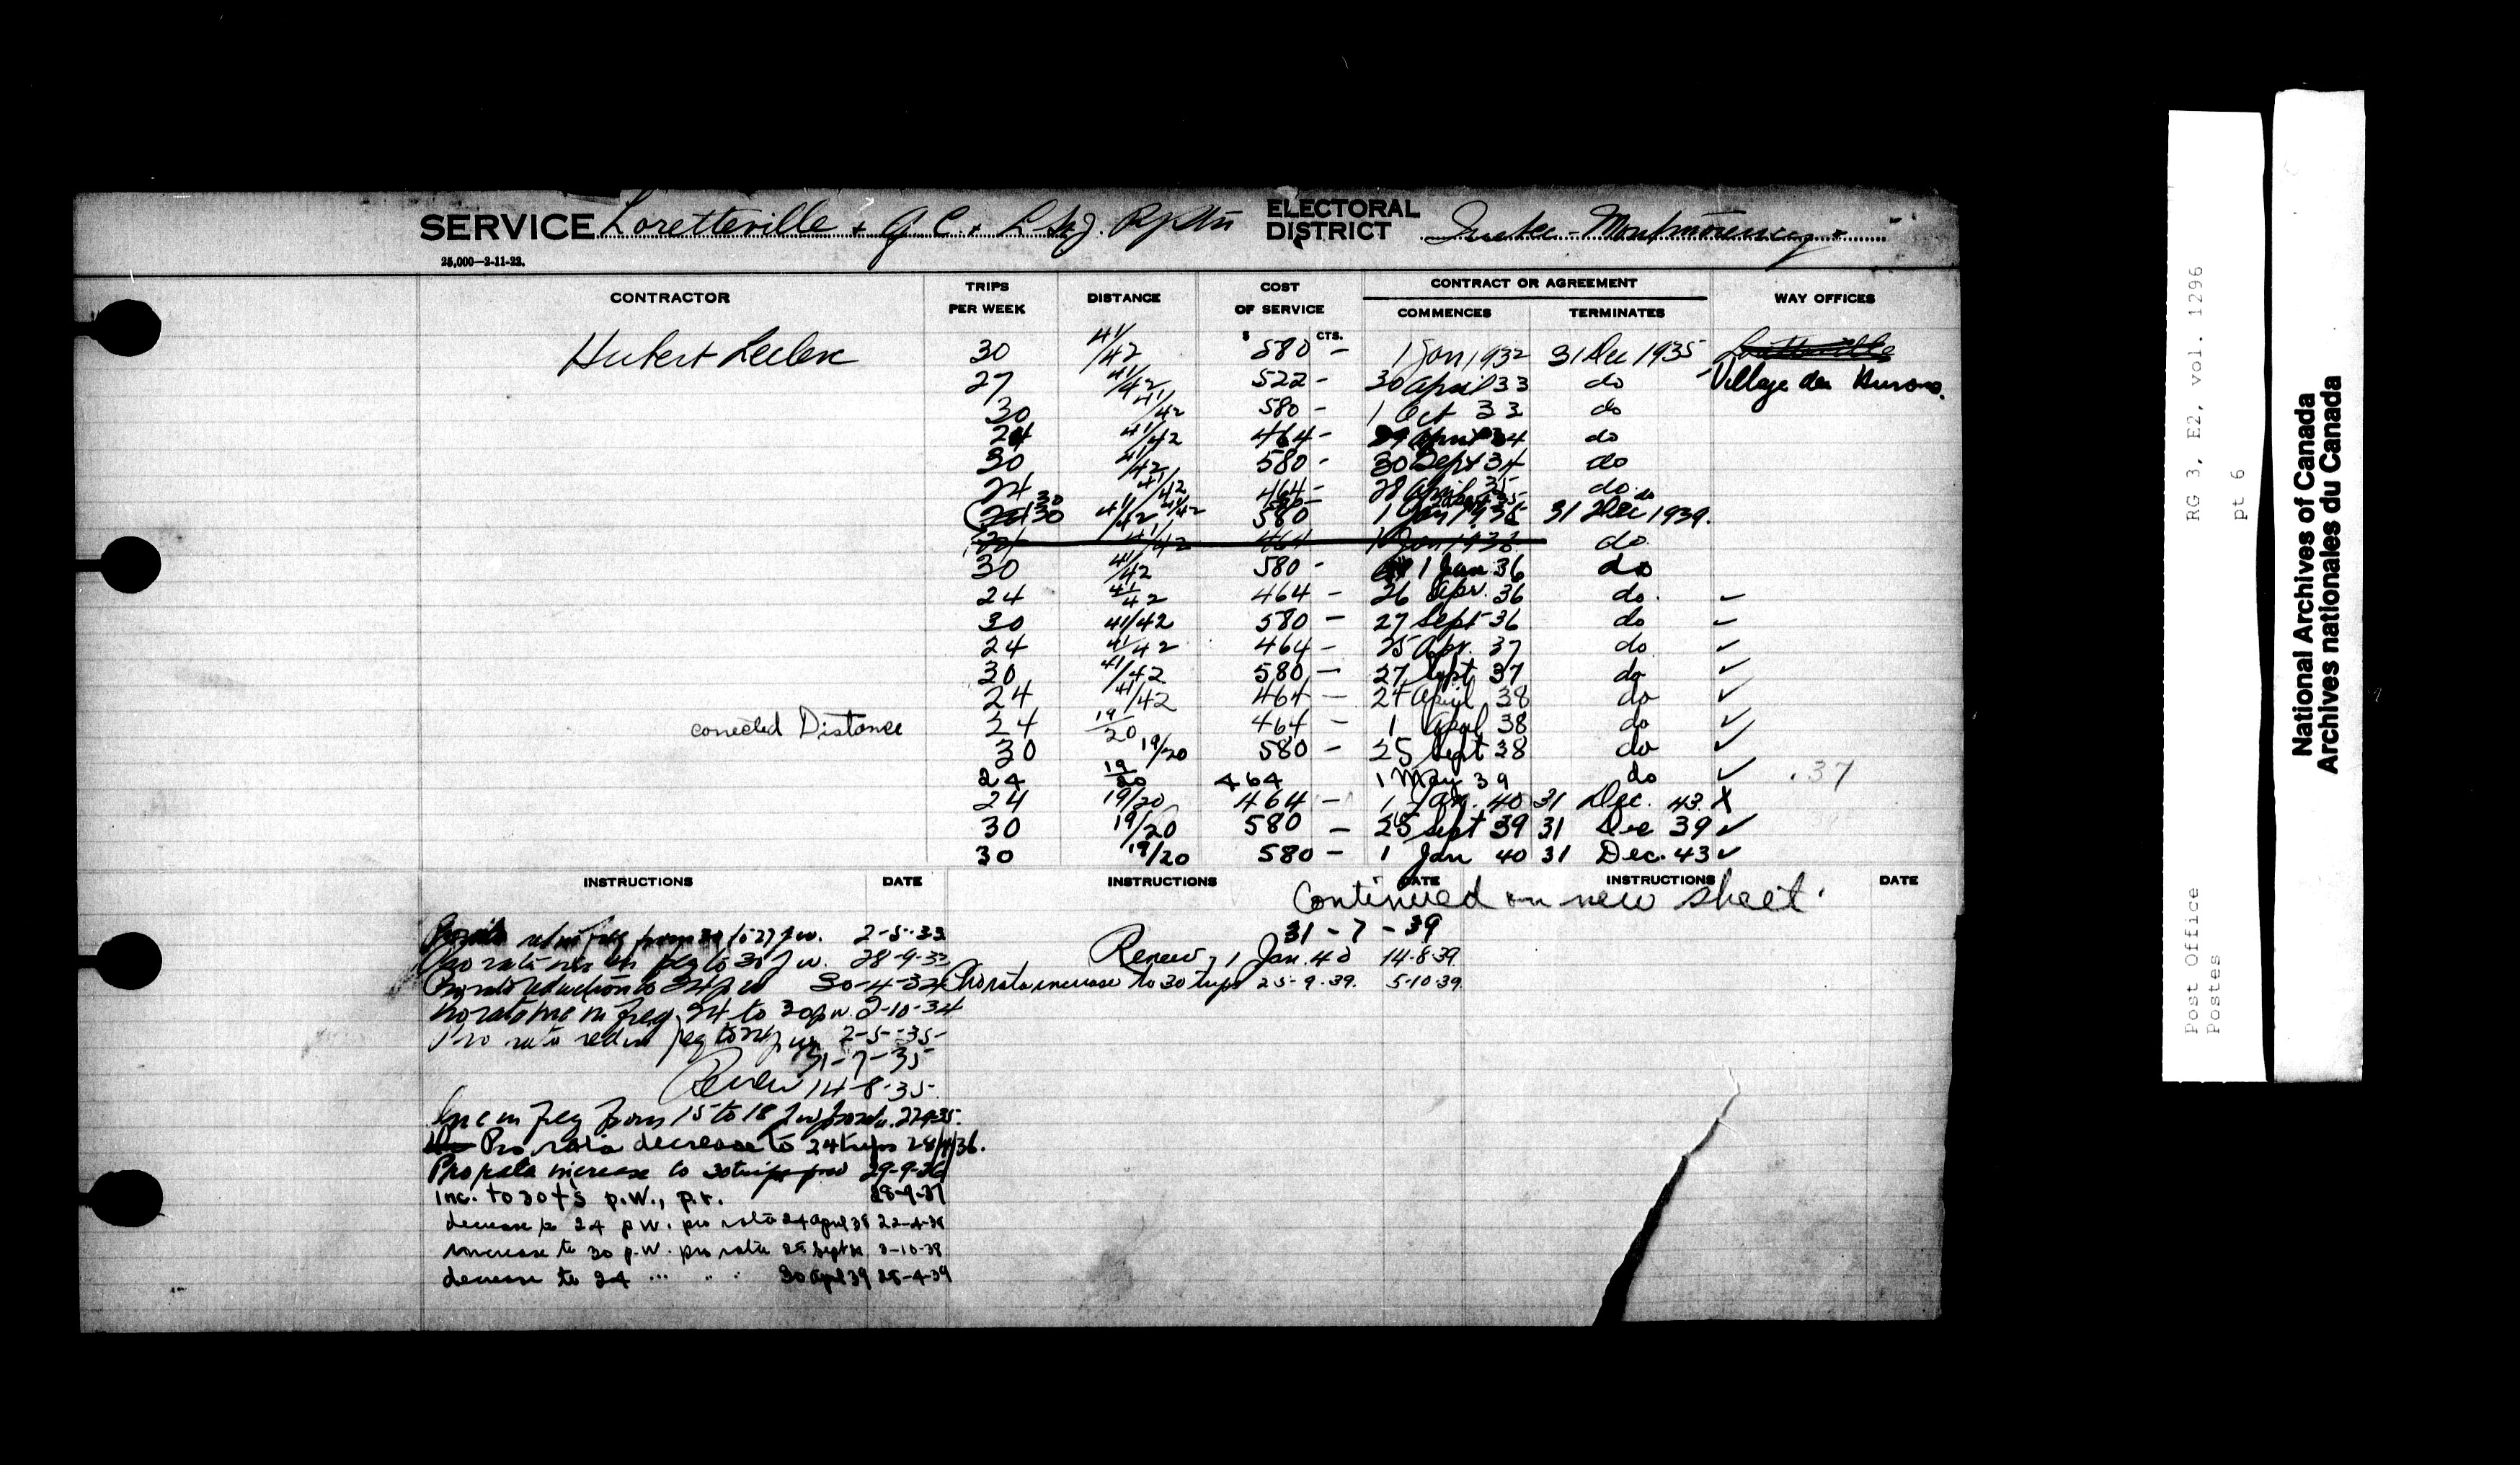 SERVICE Loretteville & Q C. & L St J. Ry Stn ELECTORAL DISTRICT Quebec-Montmorency
25,000—2-11-22.
CONTRACTOR TRIPS PER WEEK DISTANCE COST OF SERVICE CONTRACT OR AGREEMENT WAY OFFICES
COMMENCES TERMINATES
$ CTS.
Hubert Leclerc 30 41/42 580 - 1 Jan 1932 31 Dec 1935 Loretteville
27 41/42 522 - 30 April 33 do Village des Hurons.
30 41/42 580 - 1 Oct 33 do
24 41/42 464 - 29 April 34 do
30 41/42 580 - 30 Sept 34 do
24 41/42 464 - 28 April 35 do
30 41/42 do
30 41/42 580 1 Jan 1936 31 Dec 1939.
41/42 464 1 Jan 1936 do
30 41/42 580 - 1 Jan 36 do
24 41/42 464 - 26 Apr. 36 do. ✓
30 41/42 580 - 27 Sept 36 do ✓
24 41/42 464 - 25 Apr. 37 do ✓
30 41/42 580 - 27 Sept 37 do ✓
24 41/42 464 - 24 April 38 do ✓
corrected Distance 24 19/20 464 - 1 April 38 do ✓
30 19/20 580 - 25 Sept 38 do ✓
24 19/20 464 1 May 39 do ✓ .37
24 19/20 464 - 1 Jan. 40 31 Dec. 43 X
30 19/20 580 - 25 Sept 39 31 Dec 39 ✓
30 19/20 580 - 1 Jan 40 31 Dec. 43 ✓
INSTRUCTIONS DATE INSTRUCTIONS DATE INSTRUCTIONS DATE
Continued on new sheet.
freq from 30 to 27 p w. 2-5-33
31-7-39
Pro rata inc in freq to 30 p w. 28-9-33
Renew, 1 Jan. 40 14-8-39.
Pro rata reduction to 24 p w 30-4-34
Pro rata increase to 30 trips 25-9-39. 5-10-39.
Pro rata inc in freq. 24 to 30 p w. 2-10-34
Pro rata red in freq to 24 p w 2-5-35
31-7-35
Renew 14-8-35.
Inc in freq from 15 to 18 p w
Pro rata decrease to 24 trips 28/4/36.
Pro rata increase to 30 trips p w 29-9-36
Inc. to 30 t's p.w., p.r. 28-9-37
decrease to 24 p w. pro rata 24 April 38 22-4-38
increase to 30 p.w. pro rata 25 Sept 38 3-10-38
decrease to 24 ... " " 30 Apl 39 25-4-39
RG 3, E2, vol. 1296
pt 6
Post Office
Postes
National Archives of Canada
Archives nationales du Canada